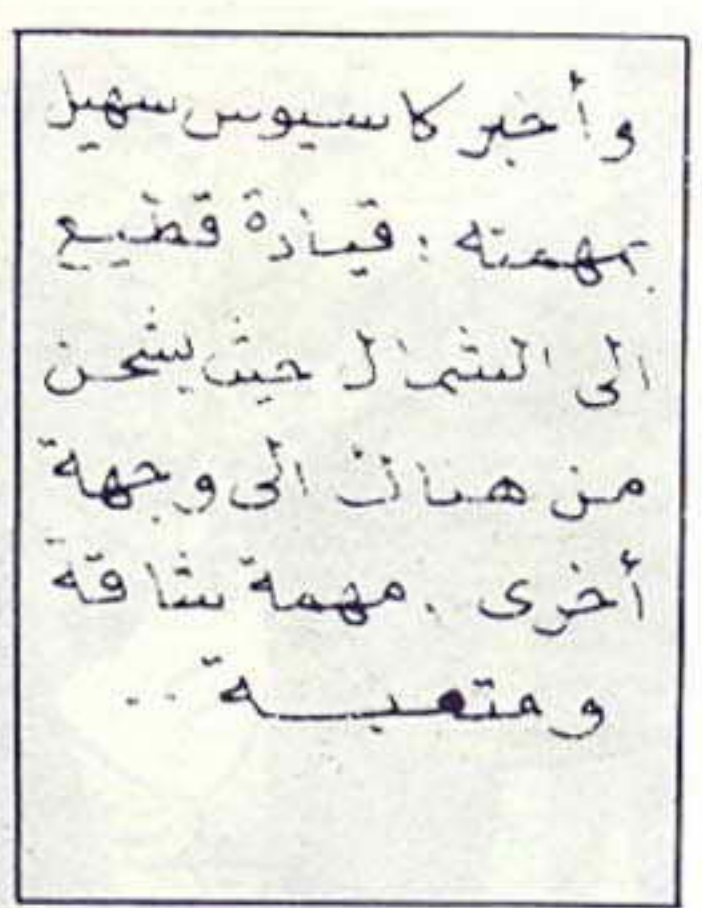 وأخبر كاسيوس سهيل
بمهمته : قيادة قطيع
الى الشمال حيث يشحن
من هناك الى وجهة
أخرى . مهمة شاقة
ومتعبة ..